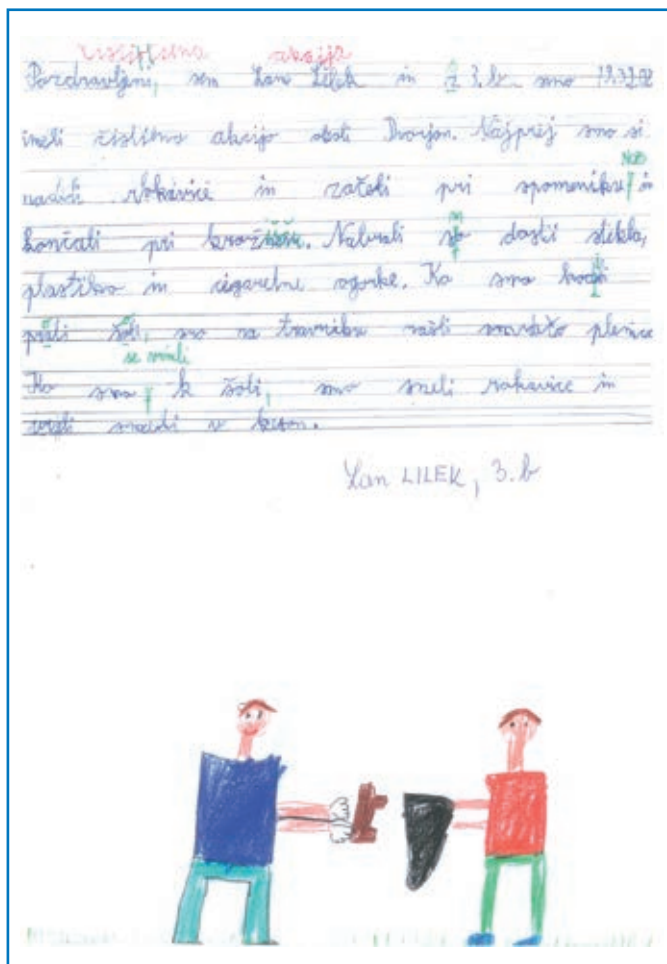 čistilna akcija
Pozdravljeni, sem Lan Lilek in iz 3.b smo
imeli čistilno akcijo okoli Dvorjan. Najprej smo si
nadeli rokavice in začeli pri spomeniku NOB in
končali pri krožišču. Nabrali smo dosti stekla,
plastike in cigaretne ogorke. Ko smo hodili
proti šoli, smo na travniku našli plenice
se vrnili
Ko smo k šoli, smo sneli rokavice in
smeti v keson.
Lan LILEK, 3.b